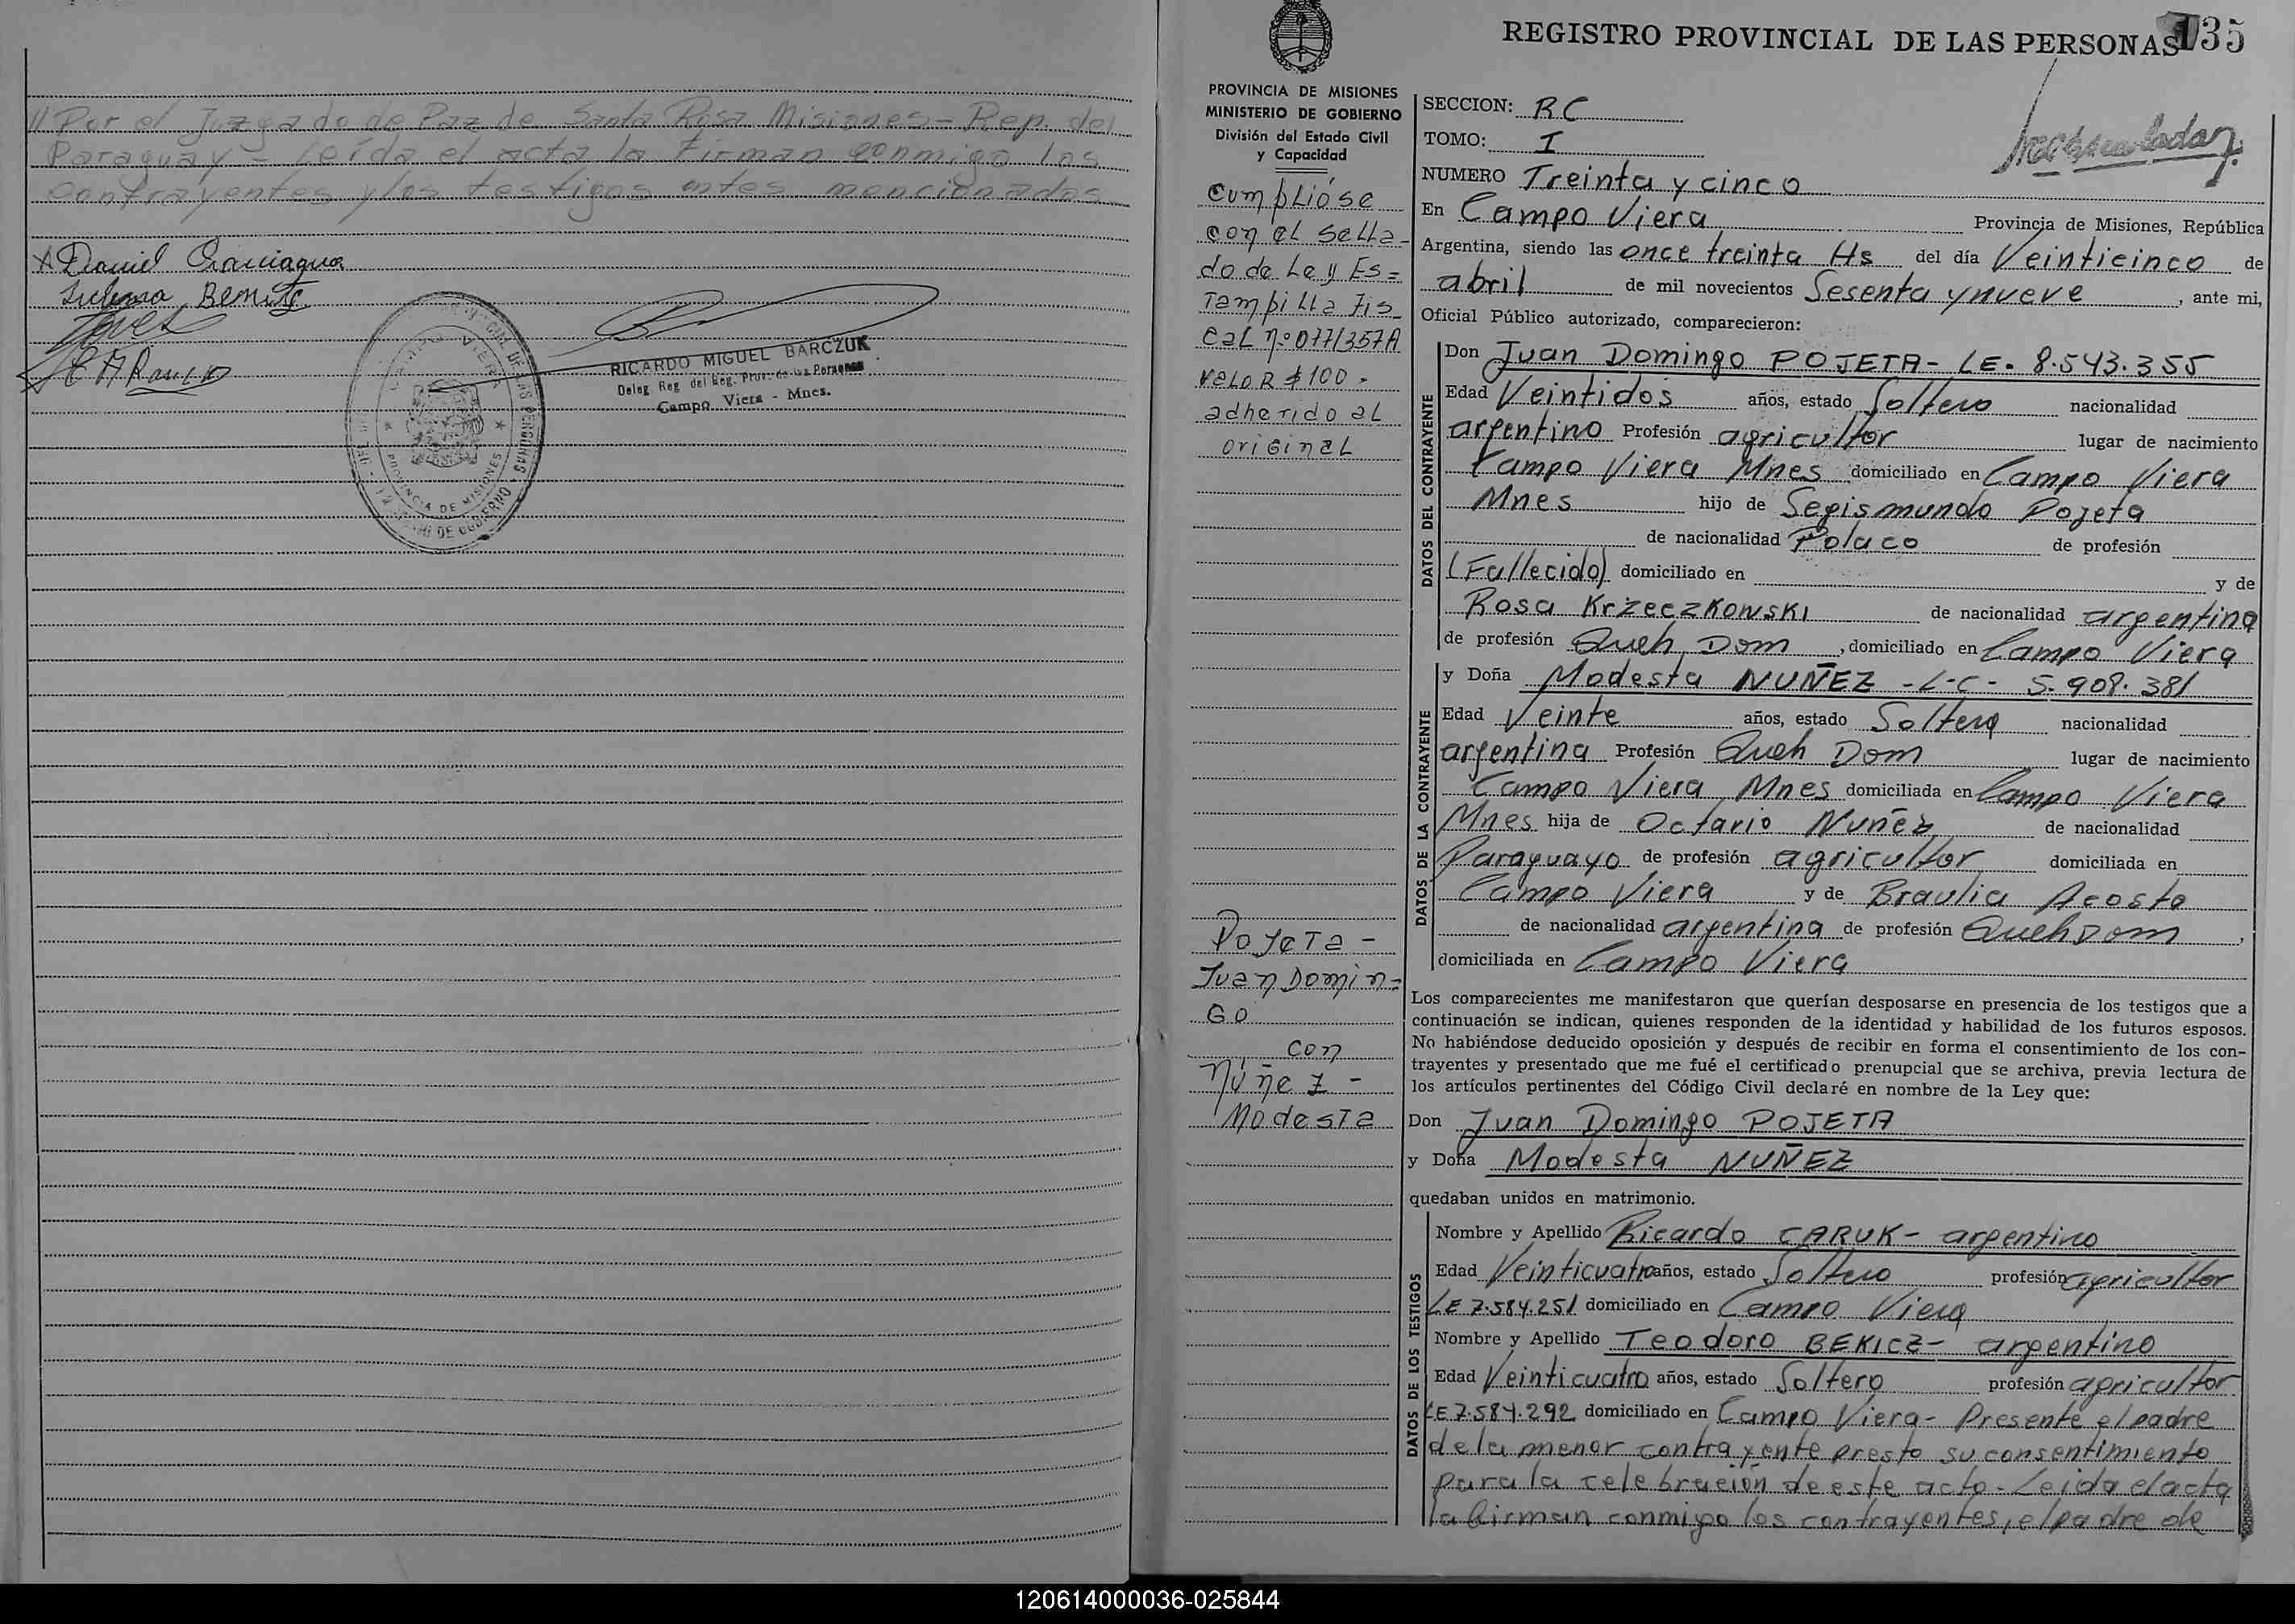 // Por el Juzgado de Paz de Santa Rosa Misiones - Rep. del
Paraguay - Leída el acta la firman conmigo los
contrayentes y los testigos antes mencionados
RICARDO MIGUEL BARCZUK
Deleg. Reg. del Reg. Prov. de las Personas
Campo Viera - Mnes.
CAMPO VIERA
PROVINCIA DE MISIONES
REGISTRO PROVINCIAL DE LAS PERSONAS
135
PROVINCIA DE MISIONES
MINISTERIO DE GOBIERNO
División del Estado Civil
y Capacidad
Cumplióse
con el sella-
do de Ley Es=
Tampilla Fis
cal nº 077/357A
valor $100.
adherido al
original
Pojeta -
Juan Domin=
go
con
Núñez -
Modesta
SECCION: RC
TOMO: I
NUMERO Treinta y cinco
En Campo Viera Provincia de Misiones, República
Argentina, siendo las once treinta Hs del día Veinticinco de
abril de mil novecientos Sesenta y nueve, ante mi,
Oficial Público autorizado, comparecieron:
DATOS DEL CONTRAYENTE
Don Juan Domingo POJETA - LE. 8.543.355
Edad Veintidos años, estado Soltero nacionalidad
argentino Profesión agricultor lugar de nacimiento
Campo Viera Mnes domiciliado en Campo Viera
Mnes hijo de Segismundo Pojeta
de nacionalidad Polaco de profesión
(Fallecido) domiciliado en y de
Rosa Krzeczkowski de nacionalidad argentina
de profesión Queh Dom, domiciliado en Campo Viera
DATOS DE LA CONTRAYENTE
y Doña Modesta NUÑEZ - L-C- 5.908.381
Edad Veinte años, estado Soltera nacionalidad
argentina Profesión Queh Dom lugar de nacimiento
Campo Viera Mnes domiciliada en Campo Viera
Mnes hija de Octavio Nuñez de nacionalidad
Paraguayo de profesión agricultor domiciliada en
Campo Viera y de Braulia Acosta
de nacionalidad argentina de profesión Queh Dom,
domiciliada en Campo Viera
Los comparecientes me manifestaron que querían desposarse en presencia de los testigos que a
continuación se indican, quienes responden de la identidad y habilidad de los futuros esposos.
No habiéndose deducido oposición y después de recibir en forma el consentimiento de los con-
trayentes y presentado que me fué el certificado prenupcial que se archiva, previa lectura de
los artículos pertinentes del Código Civil declaré en nombre de la Ley que:
Don Juan Domingo POJETA
y Doña Modesta NUÑEZ
quedaban unidos en matrimonio.
DATOS DE LOS TESTIGOS
Nombre y Apellido Ricardo CARUK - argentino
Edad Veinticuatro años, estado Soltero profesión agricultor
LE 7.584.251 domiciliado en Campo Viera
Nombre y Apellido Teodoro BEKICZ - argentino
Edad Veinticuatro años, estado Soltero profesión agricultor
LE 7.584.292 domiciliado en Campo Viera - Presente el padre
de la menor contrayente presto su consentimiento
para la celebración de este acto - Leida el acta
la firman conmigo los contrayentes, el padre de
120614000036-025844